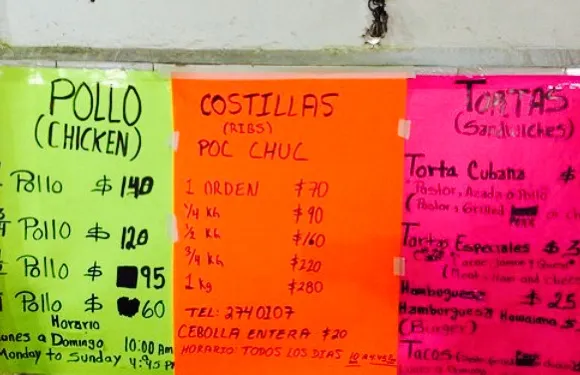 POLLO
(CHICKEN)
Pollo $ 140
Pollo $ 120
Pollo $ 95
Pollo $ 60
Horario
Lunes a Domingo 10:00 Am
Monday to Sunday 4:45 P
COSTILLAS
(RIBS)
POC CHUC
1 ORDEN $70
1/4 Kg $90
1/2 Kg $160
3/4 Kg $220
1 kg $280
TEL: 2740107
CEBOLLA ENTERA $20
HORARIO: TODOS LOS DIAS
TORTAS
(Sandwiches)
Torta Cubana $
Pastor, Asada o Pollo
(Pastor, Grilled
Tortas Especiales $
Hamburguesa $ 25
Hamburguesa Hawaiana
(Burger)
Tacos